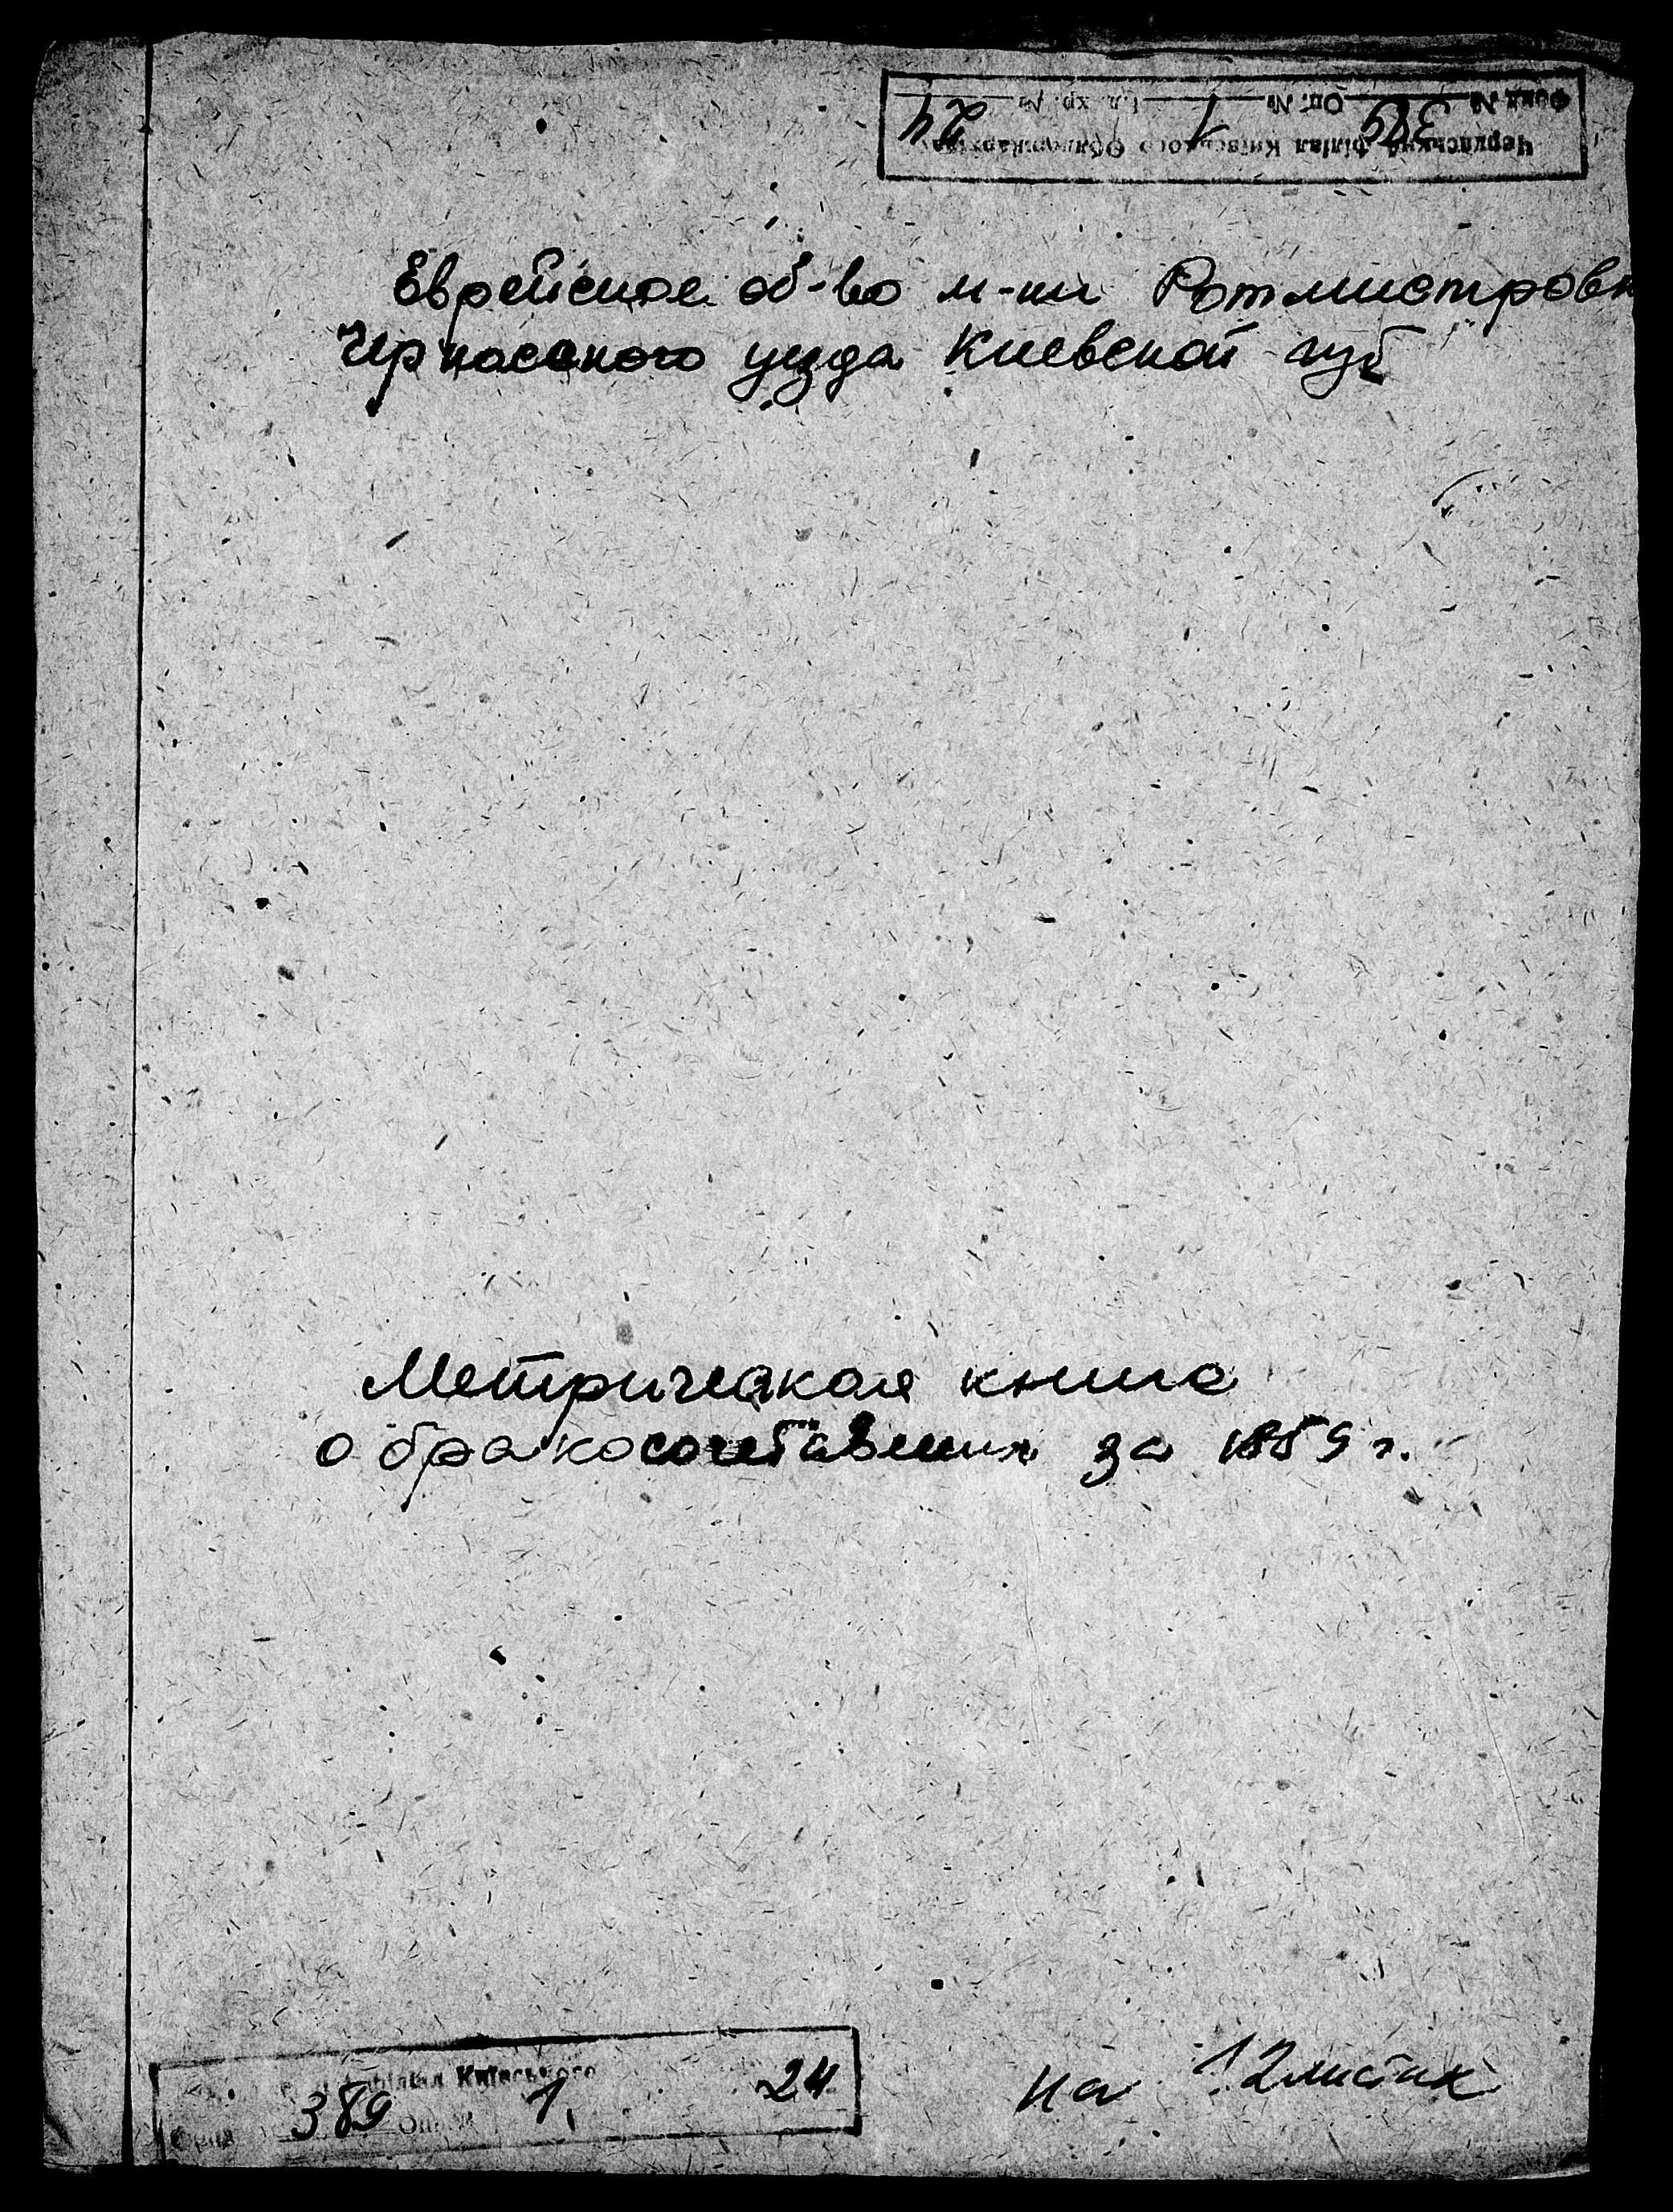 Черкаський філіал Київського Облдержархіву
Фонд № 389 Оп. № 1 Од. хр. № 24
Еврейское об-во м-ки Ротмистровк
Черкасского уезда Киевской губ
Метрическая книга
о бракосочетавшихся за 1859 г.
філіал Київського
Фонд 389 Оп. № 1 24
на 12 листах